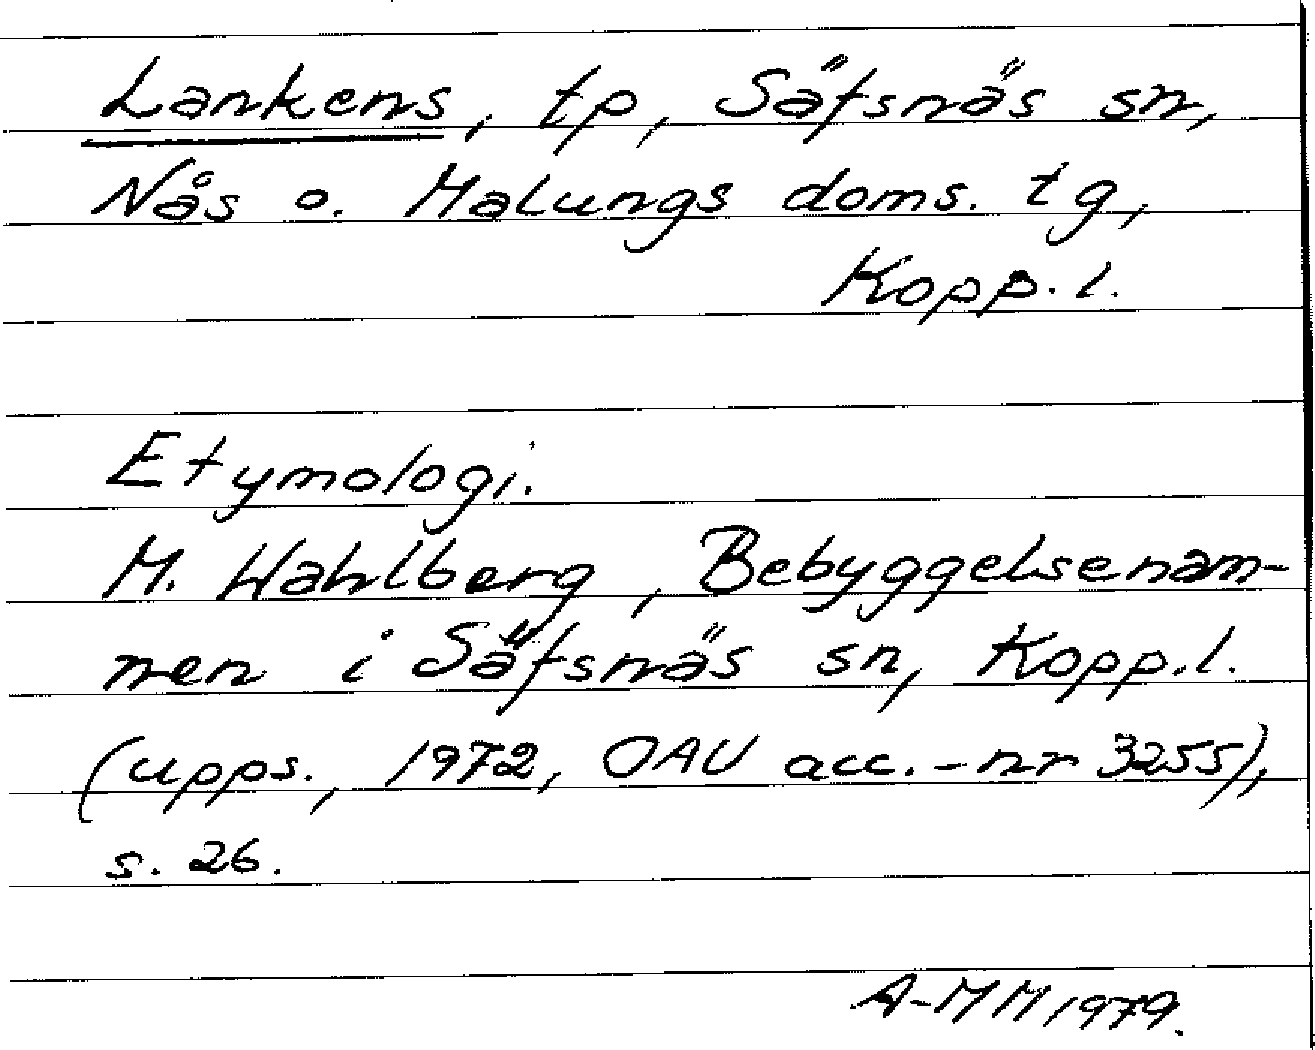 Lankens, tp, Säfsnäs sn,
Nås o. Malungs doms. tg,
Kopp. l.
Etymologi.
M. Wahlberg, Bebyggelsenam-
nen i Säfsnäs sn, Kopp.l.
(upps., 1972, OAU acc.-nr 3255),
s. 26.
A-MM 1979.